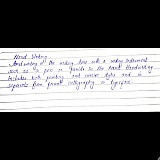 Hand Writing
Handwriting is the writing done with a writing instrument
such as a pen or pencil in the hand. Handwriting
includes both printing and cursive styles and is
separate from formal calligraphy or typeface